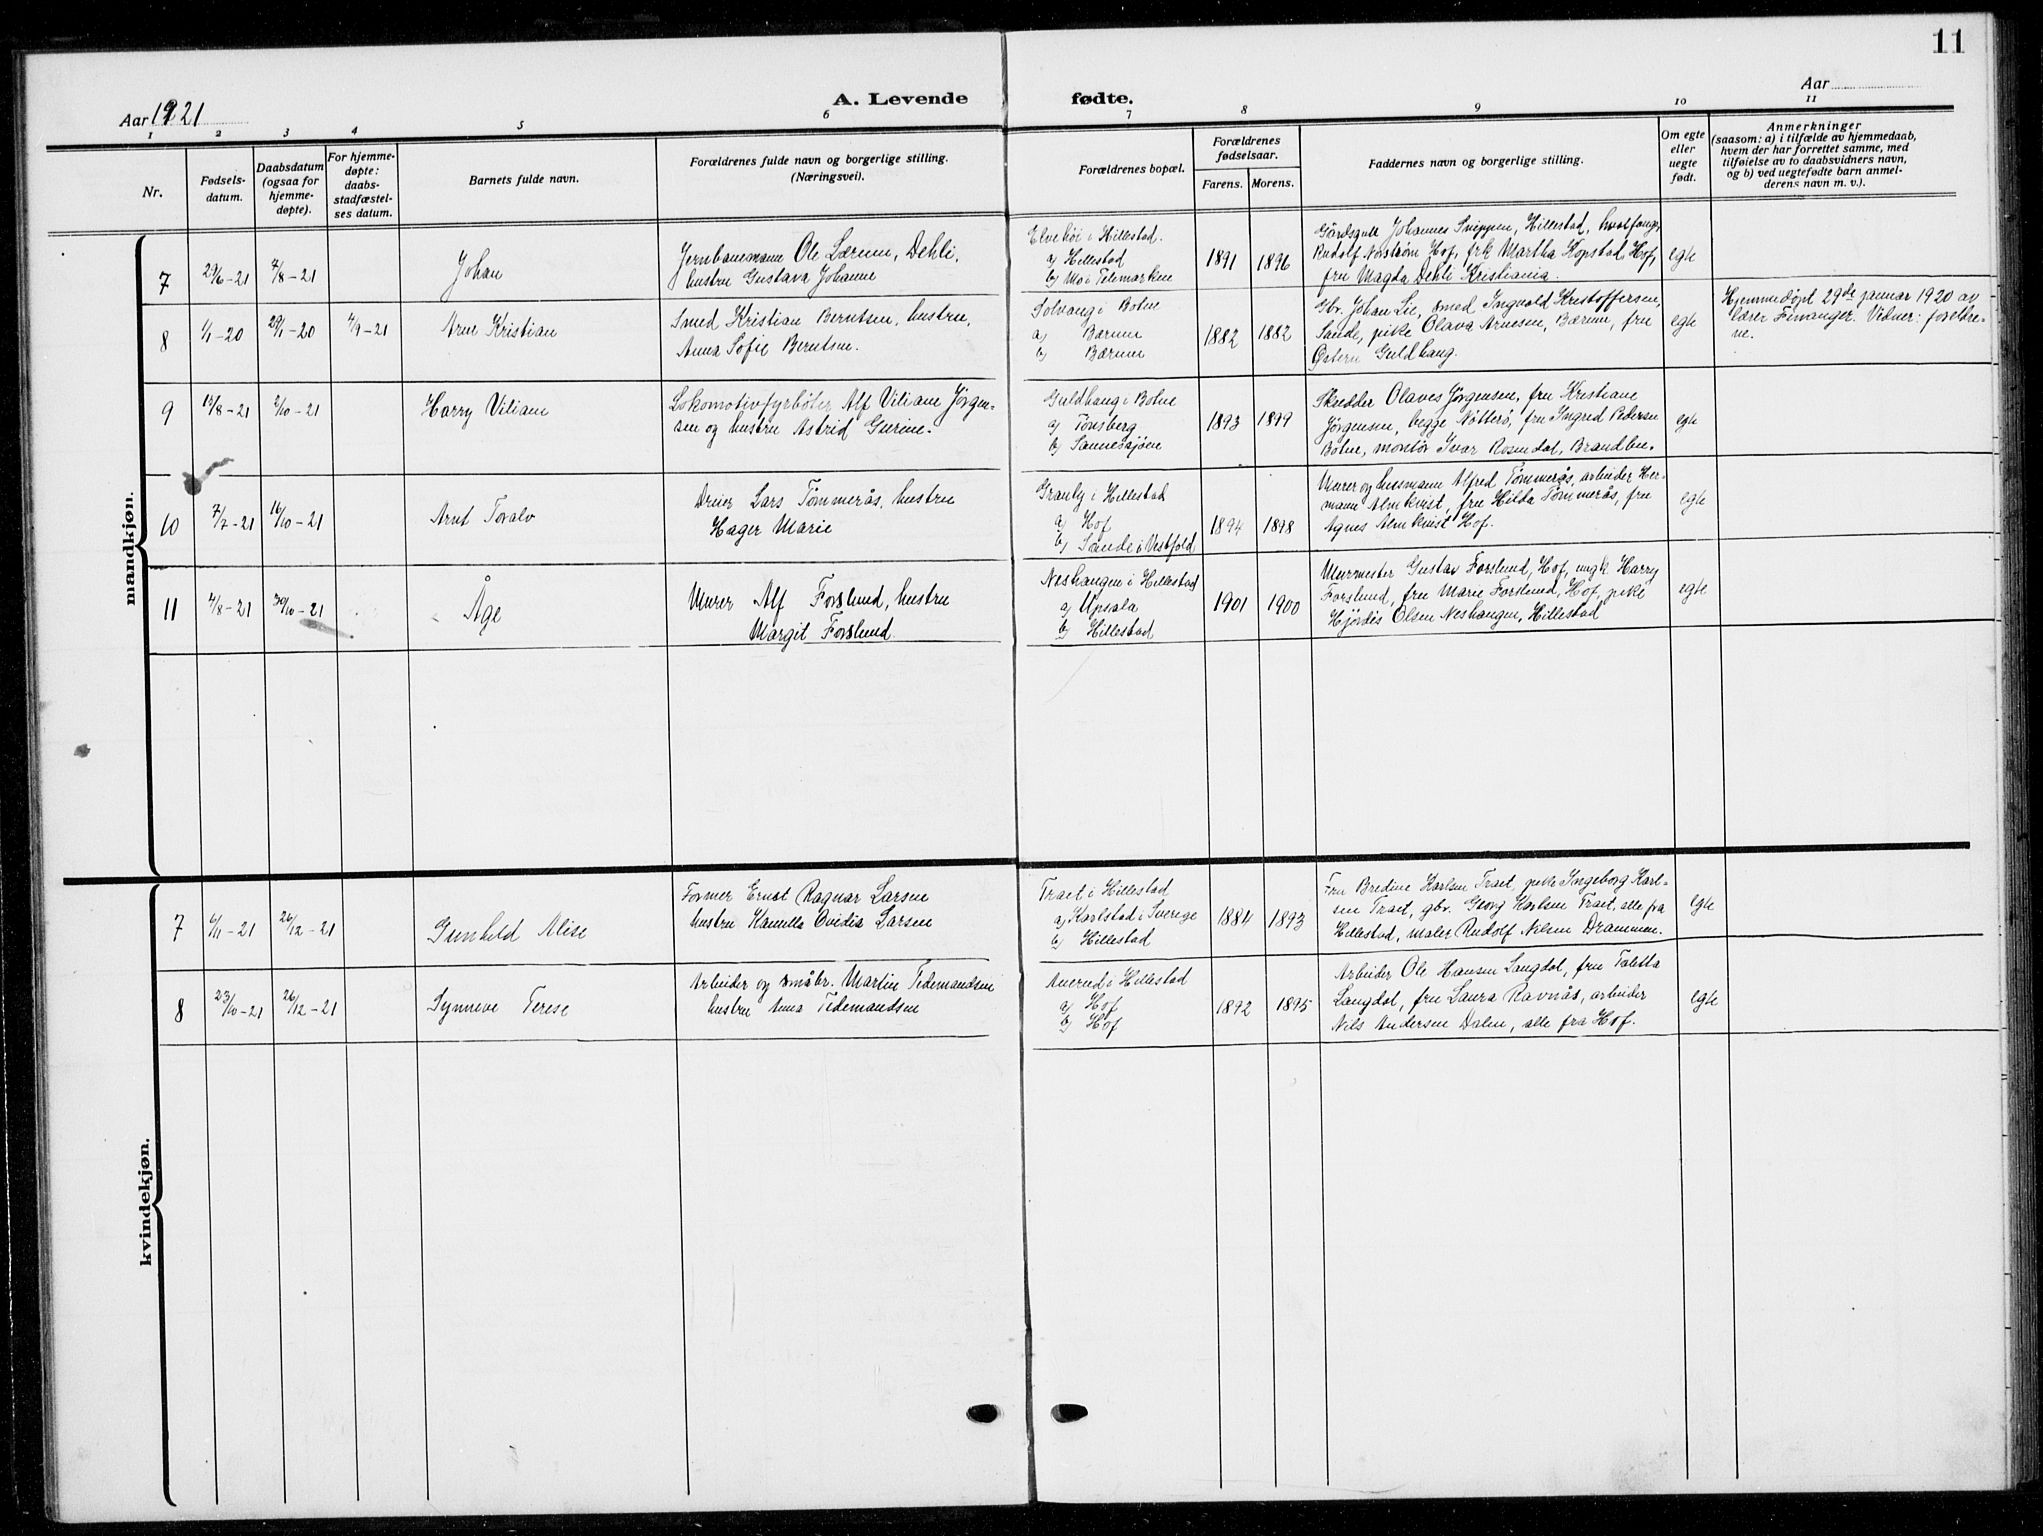 11
Aar 1921
A. Levende fødte.
Aar
1 2 3 4 5 6 7 8 9 10 11
Nr.
Fødsels-
datum.
Daabsdatum
(ogsaa for
hjemme-
døpte).
For hjemme-
døpte:
daabs-
stadfæstel-
ses datum.
Barnets fulde navn.
Forældrenes fulde navn og borgerlige stilling.
(Næringsvei).
Forældrenes bopæl.
Forældrenes
fødselsaar.
Farens. Morens.
Faddernes navn og borgerlige stilling.
Om egte
eller
uegte
født.
Anmerkninger
(saasom: a) i tilfælde av hjemmedaab,
hvem der har forrettet samme, med
tilføielse av to daabsvidners navn,
og b) ved uegtefødte barn anmel-
derens navn m. v.).
mandkjøn.
7 29/6-21 7/8-21 Johan
Jernbanemann Ole Lærum, Dehli,
hustru Gustava Johanne
Elvehöi i Hillestad.
a) Hillestad
b) Mo i Telemarken
1891 1896
Gårdsgutt Johannes Snippen, Hillestad,
Rudolf Norstrøm Hof, frk Martha Kopstad Hof,
fru Magda Dehli Kristiania.
egte
8 1/1-20 29/1-20 4/9-21 Arne Kristian
Smed Kristian Berntsen, hustru,
Anna Sofie Berntsen.
Solvang i Botne
a) Bærum
b) Bærum
1882 1882
Gbr. Johan Lie, smed Ingvald Kristoffersen,
Sande, pike Olava Arnesen, Bærum, fru
Østern Guldhaug.
egte
Hjemmedøpt 29de januar 1920 av
lærer Finanger. Vidner: foreldre-
ne.
9 13/8-21 2/10-21 Harry Viliam
Lokomotivfyrbøter Alf Viliam Jørgen-
sen og hustru Astrid Gurine.
Guldhaug i Botne
a) Tønsberg
b) Sannessjøen
1893 1899
Skredder Olaves Jørgensen, fru Kristiane
Jørgensen, begge Nøtterö, fru Ingred Pedersen
Botne, montör Ivar Rosendal, Brandbu.
egte
10 7/7-21 16/10-21 Arnt Toralv
Dreier Lars Tömmerås, hustru
Hager Marie
Granly i Hillestad
a) Hof
b) Sande i Vestfold
1894 1898
Murer og husmann Alfred Tömmerås, arbeider Her-
mann Almkvist, fru Hilda Tömmerås, fru
Agnes Almkvist Hof.
egte
11 4/8-21 30/10-21 Åge
Murer Alf Forslund, hustru
Margit Forslund.
Neshaugen i Hillestad
a) Upsala
b) Hillestad
1901 1900
Murmester Gustav Forslund, Hof, ungk. Harry
Forslund, fru Marie Forslund, Hof, pike
Hjördis Olsen Neshaugen, Hillestad
egte
kvindekjøn.
7 6/11-21 26/12-21 Gunhild Alise
Former Ernst Ragnar Larsen
hustru Kamilla Ovidia Larsen
Traet i Hillestad
a) Karlstad i Sverige
b) Hillestad
1884 1893
Fru Bredine Karlsen Traet, pike Ingeborg Karl-
sen Traet, gbr. Georg Karlsen Traet, alle fra
Hillestad, maler Rudolf Nilsen Drammen.
egte
8 23/10-21 26/12-21 Synneve Terese
Arbeider og småbr. Martin Tidemandsen
hustru Anna Tidemandsen
Auerud i Hillestad
a) Hof
b) Hof
1892 1895
Arbeider Ole Hansen Langdal, fru Taletta
Langdal, fru Laura Ravnås, arbeider
Nils Andersen Dalen, alle fra Hof.
egte